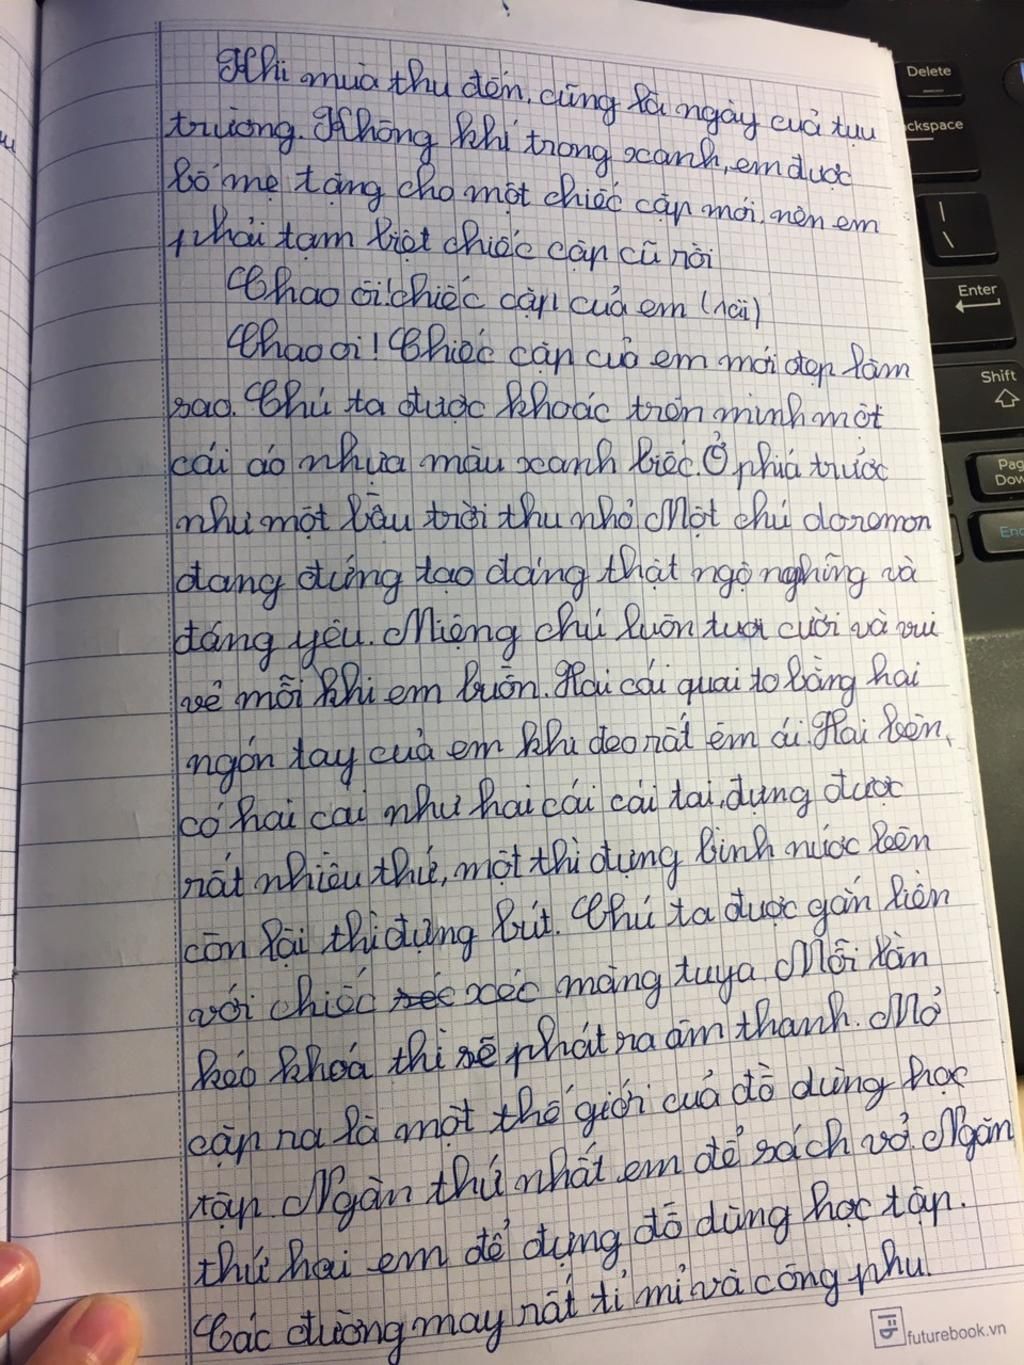 Khi mùa thu đến, cũng là ngày của tựu
trường. Không khí trong xanh, em được
bố mẹ tặng cho một chiếc cặp mới, nên em
phải tạm biệt chiếc cặp cũ rồi
Chao ôi! chiếc cặp của em (nói)
Chao ơi! Chiếc cặp của em mới đẹp làm
sao. Chú ta được khoác trên mình một
cái áo nhựa màu xanh biếc. Ở phiá trước
như một bầu trời thu nhỏ. Một chú doremon
đang đứng tạo dáng thật ngộ nghĩng và
đáng yêu. Miệng chú luôn tươi cười và vui
vẻ mỗi khi em buồn. Hai cái quai to bằng hai
ngón tay của em khi đeo rất êm ái. Hai bên,
có hai cai như hai cái cái tai, đựng được
rất nhiều thứ, một thì đựng bình nước bên
còn lại thì đựng bút. Chú ta được gắn liền
với chiếc xéc màng tuya. Mỗi lần
kéo khoá thì sẽ phát ra âm thanh. Mở
cặp ra là một thế giới của đồ dùng học
tập. Ngăn thứ nhất em để sách vở. Ngăn
thứ hai em để đựng đồ dùng học tập.
Các đường may rất tỉ mỉ và công phu.
futurebook.vn
Delete
ckspace
Enter
Shift
Pag
Dow
End